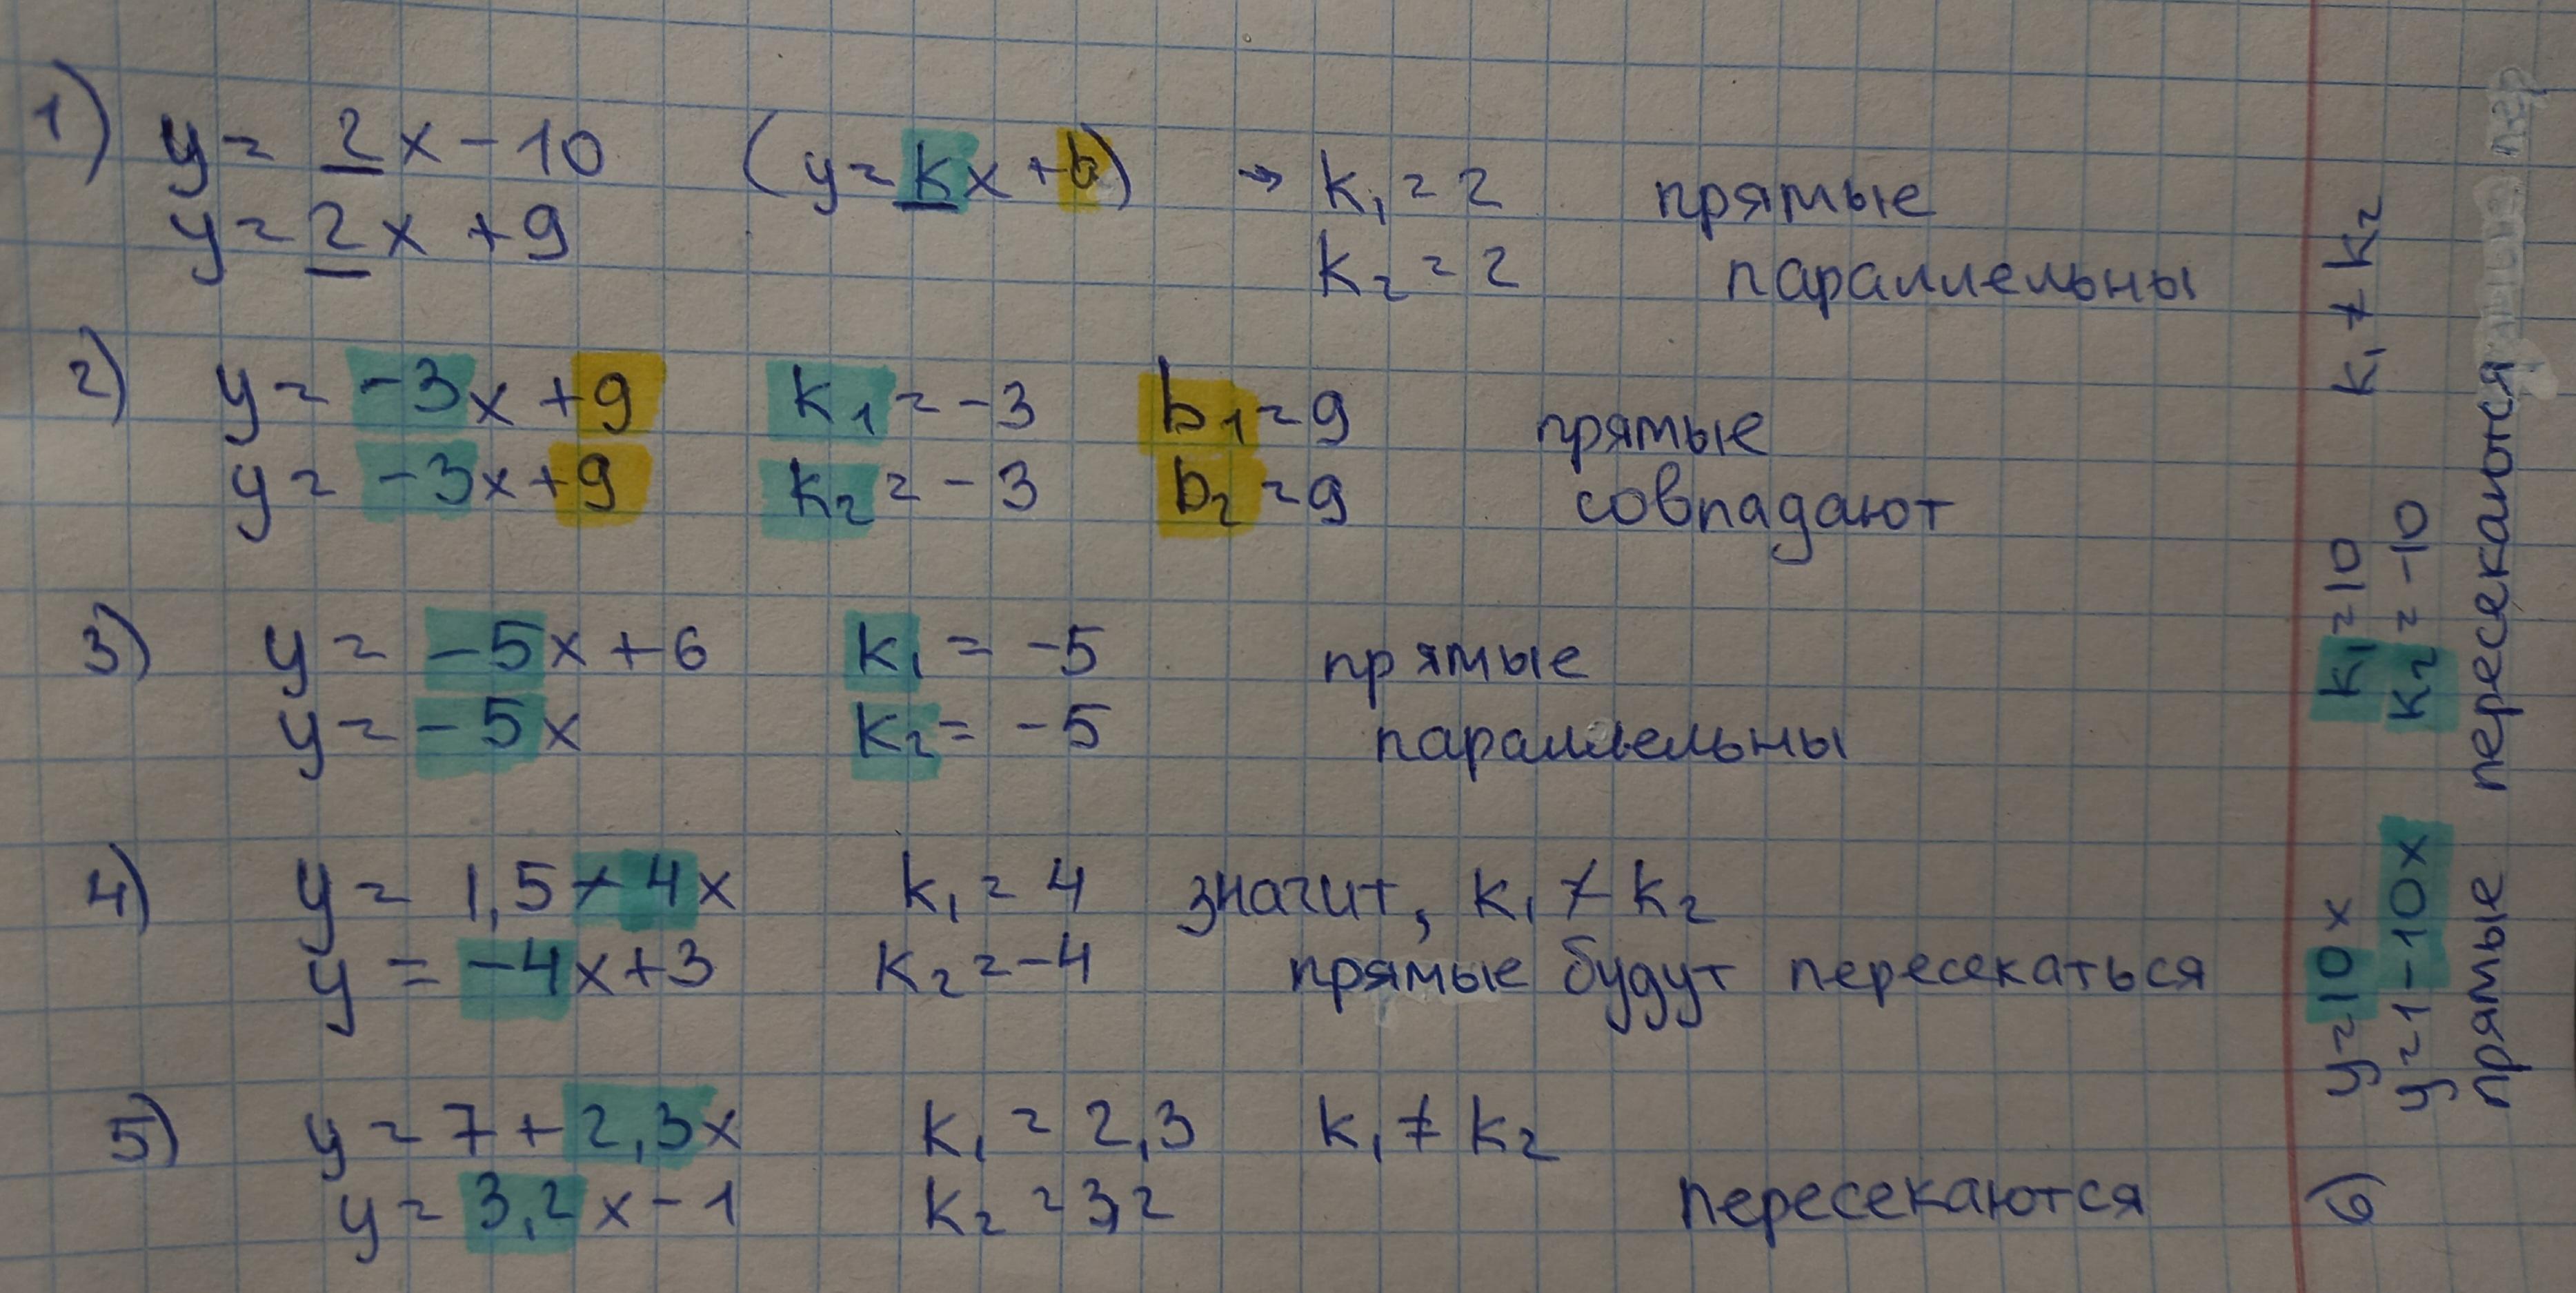 1) y = 2x - 10 (y = kx + b) → k₁ = 2 прямые
y = 2x + 9 k₂ = 2 параллельны
2) y = -3x + 9 k₁ = -3 b₁ = 9 прямые
y = -3x + 9 k₂ = -3 b₂ = 9 совпадают
3) y = -5x + 6 k₁ = -5 прямые
y = -5x k₂ = -5 параллельны
4) y = 1,5 + 4x k₁ = 4 значит, k₁ ≠ k₂
y = -4x + 3 k₂ = -4 прямые будут пересекаться
5) y = 7 + 2,3x k₁ = 2,3 k₁ ≠ k₂
y = 3,2x - 1 k₂ = 3,2 пересекаются
6) y = 10x k₁ = 10 k₁ ≠ k₂
y = 1 - 10x k₂ = -10
прямые пересекаются